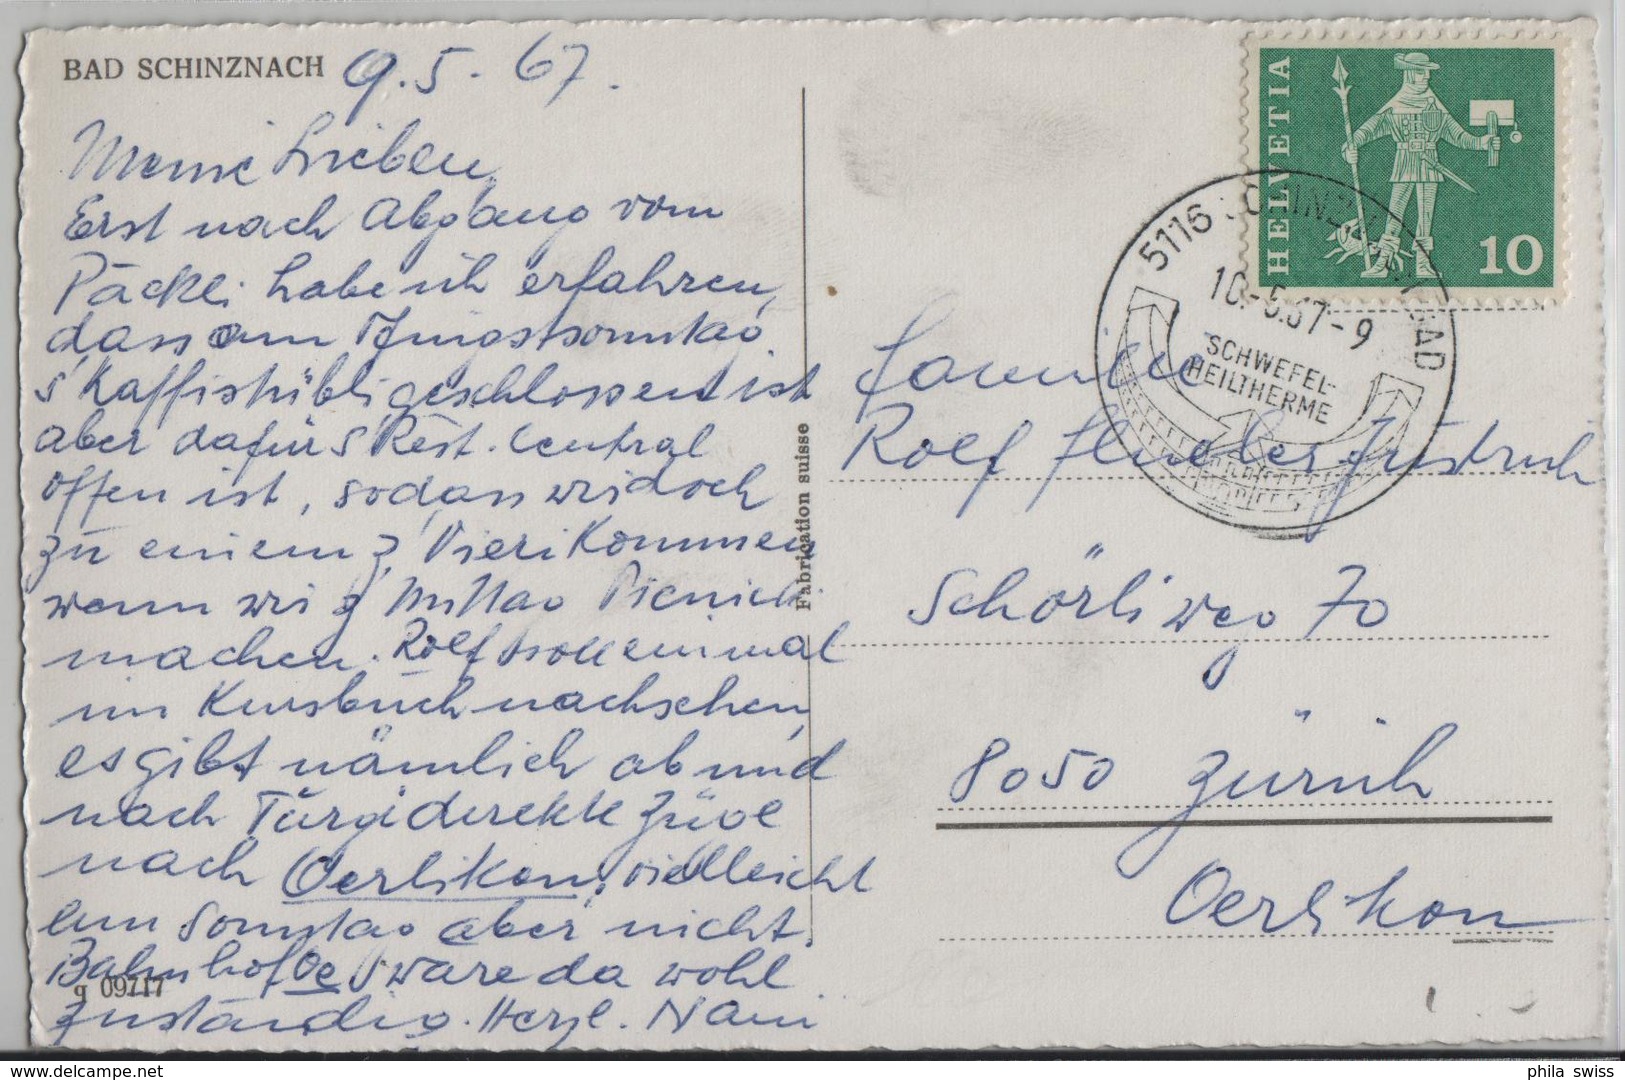 BAD SCHINZNACH 9.5.67.
Meine Lieben,
Erst nach Abgang vom
Päckli habe ich erfahren,
dass am Pfingstsonntag
s'Kaffistübli geschlossen ist
aber dafür s Rest. Central
offen ist, sodass wir doch
zu einem z'Vieri kommen
wenn wir z' Mittag Picnick
machen. Rolf soll einmal
im Kursbuch nachsehen,
es gibt nämlich ab und
nach Turgi direkte Züge
nach Oerlikon, vielleicht
am Sonntag aber nicht.
Bahnhof Oe wäre da wohl
zuständig. Herzl. Mami
g 09717
Fabrication suisse
HELVETIA
10
5116 SCHINZNACH BAD
10.-5.67-9
SCHWEFEL-
HEILTHERME
Familie
Rolf
Schörliweg 70
8050 Zürich
Oerlikon
phila swiss
delcampe.net